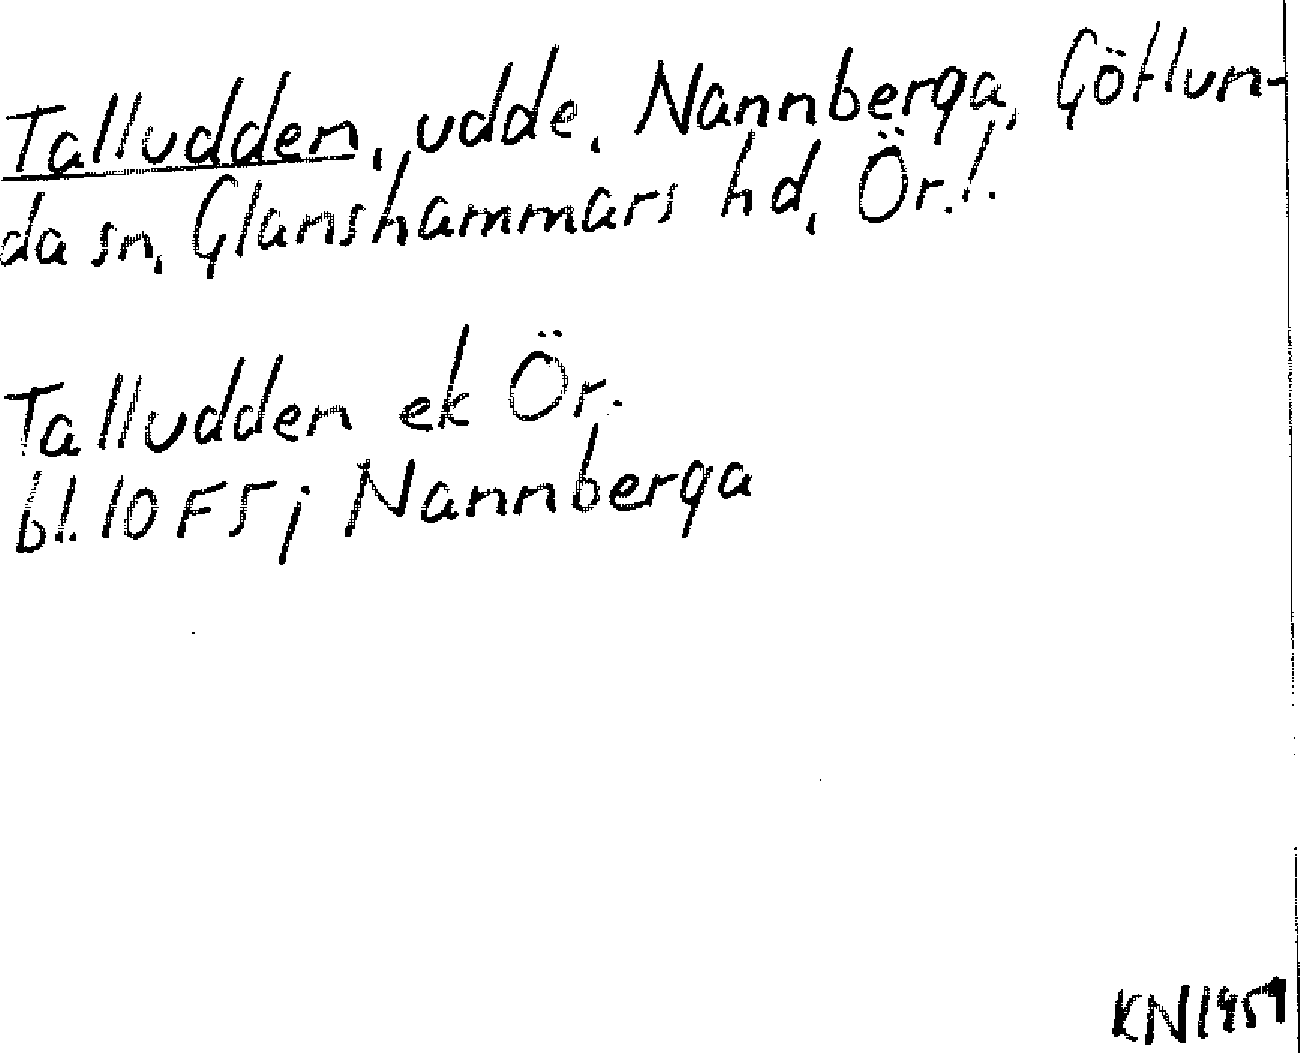 Talludden, udde, Nannberga, Götlun-
da sn, Glanshammars hd, Ör.l.
Talludden ek Ör.
bl. 10F5j Nannberga
KN 1959